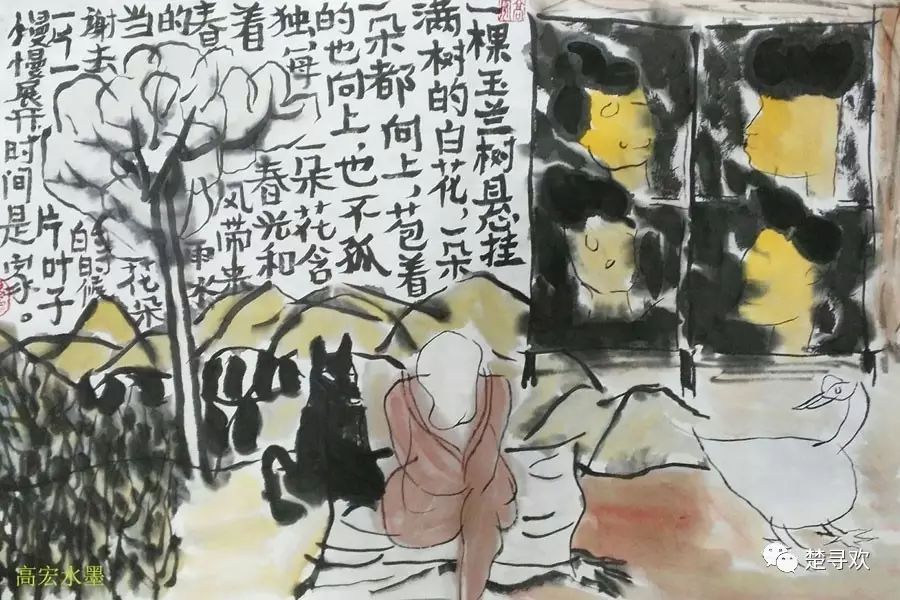 一棵玉兰树悬挂
满树的白花,一朵
一朵都向上,苞着
的也向上,也不孤
独,每一朵花含
着春光和
春风带来
的雨水
当花朵
谢去的时候
一片一片叶子
慢慢展开时间是家。
高宏水墨
楚寻欢